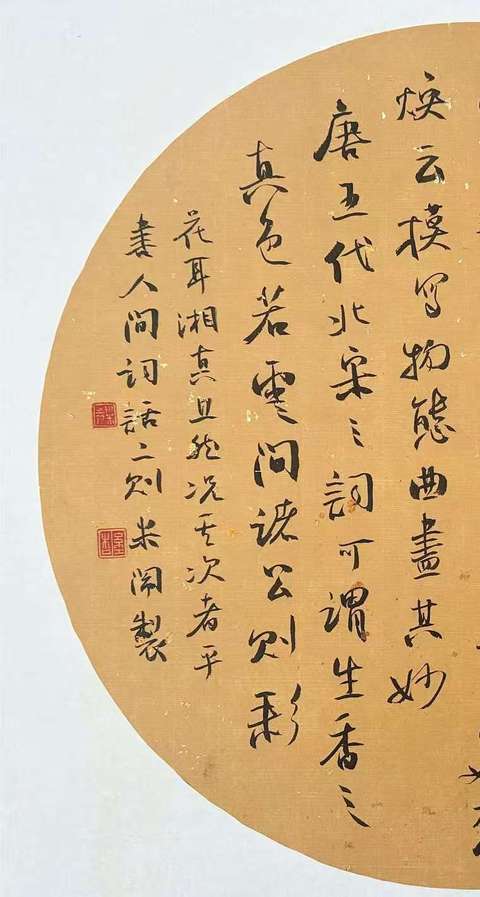 焕云摸写物態曲盡其妙
唐五代北宋之詞可謂生香之
真色若雲間諸公則彩
花耳湘真且然况其次者乎
書人間詞話二則米製